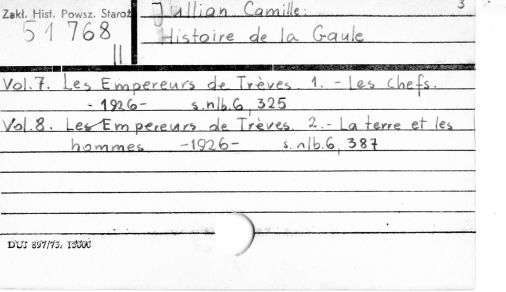 Zakł. Hist. Powsz. Staroż
51768
II
Jullian Camille: 3
Histoire de la Gaule
Vol.7. Les Empereurs de Trèves. 1. - Les chefs.
- 1926 - s. nlb. 6, 325
Vol.8. Les Empereurs de Trèves. 2. - La terre et les
hommes -1926- s. nlb. 6, 387
DUJ 897/73.